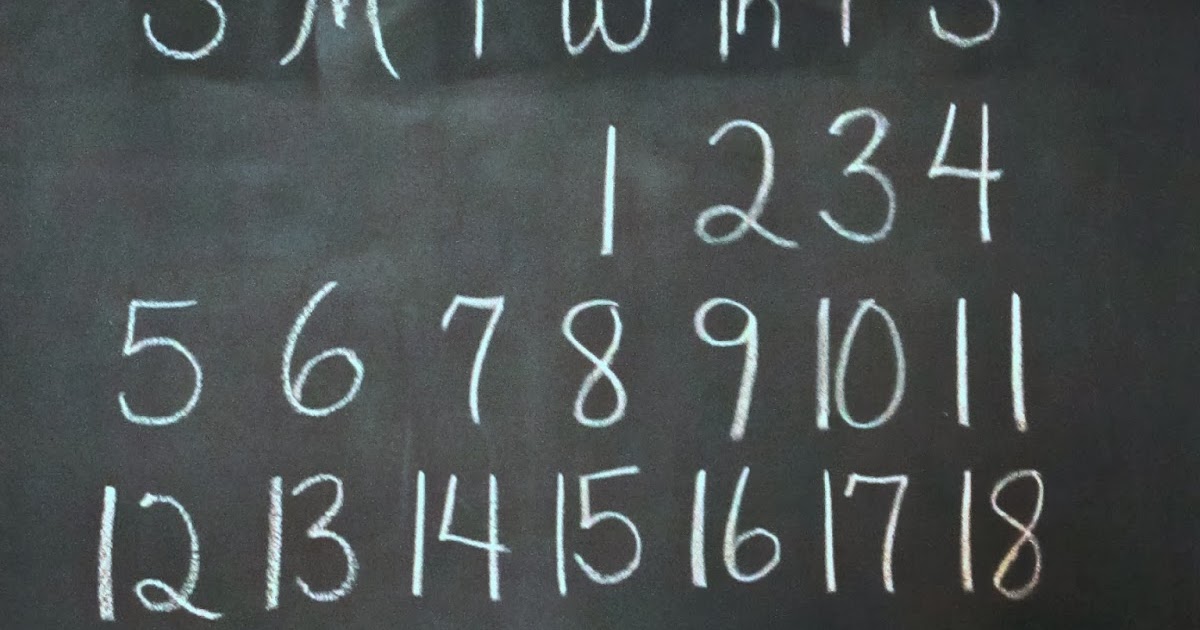 S M T W Th F S
1 2 3 4
5 6 7 8 9 10 11
12 13 14 15 16 17 18